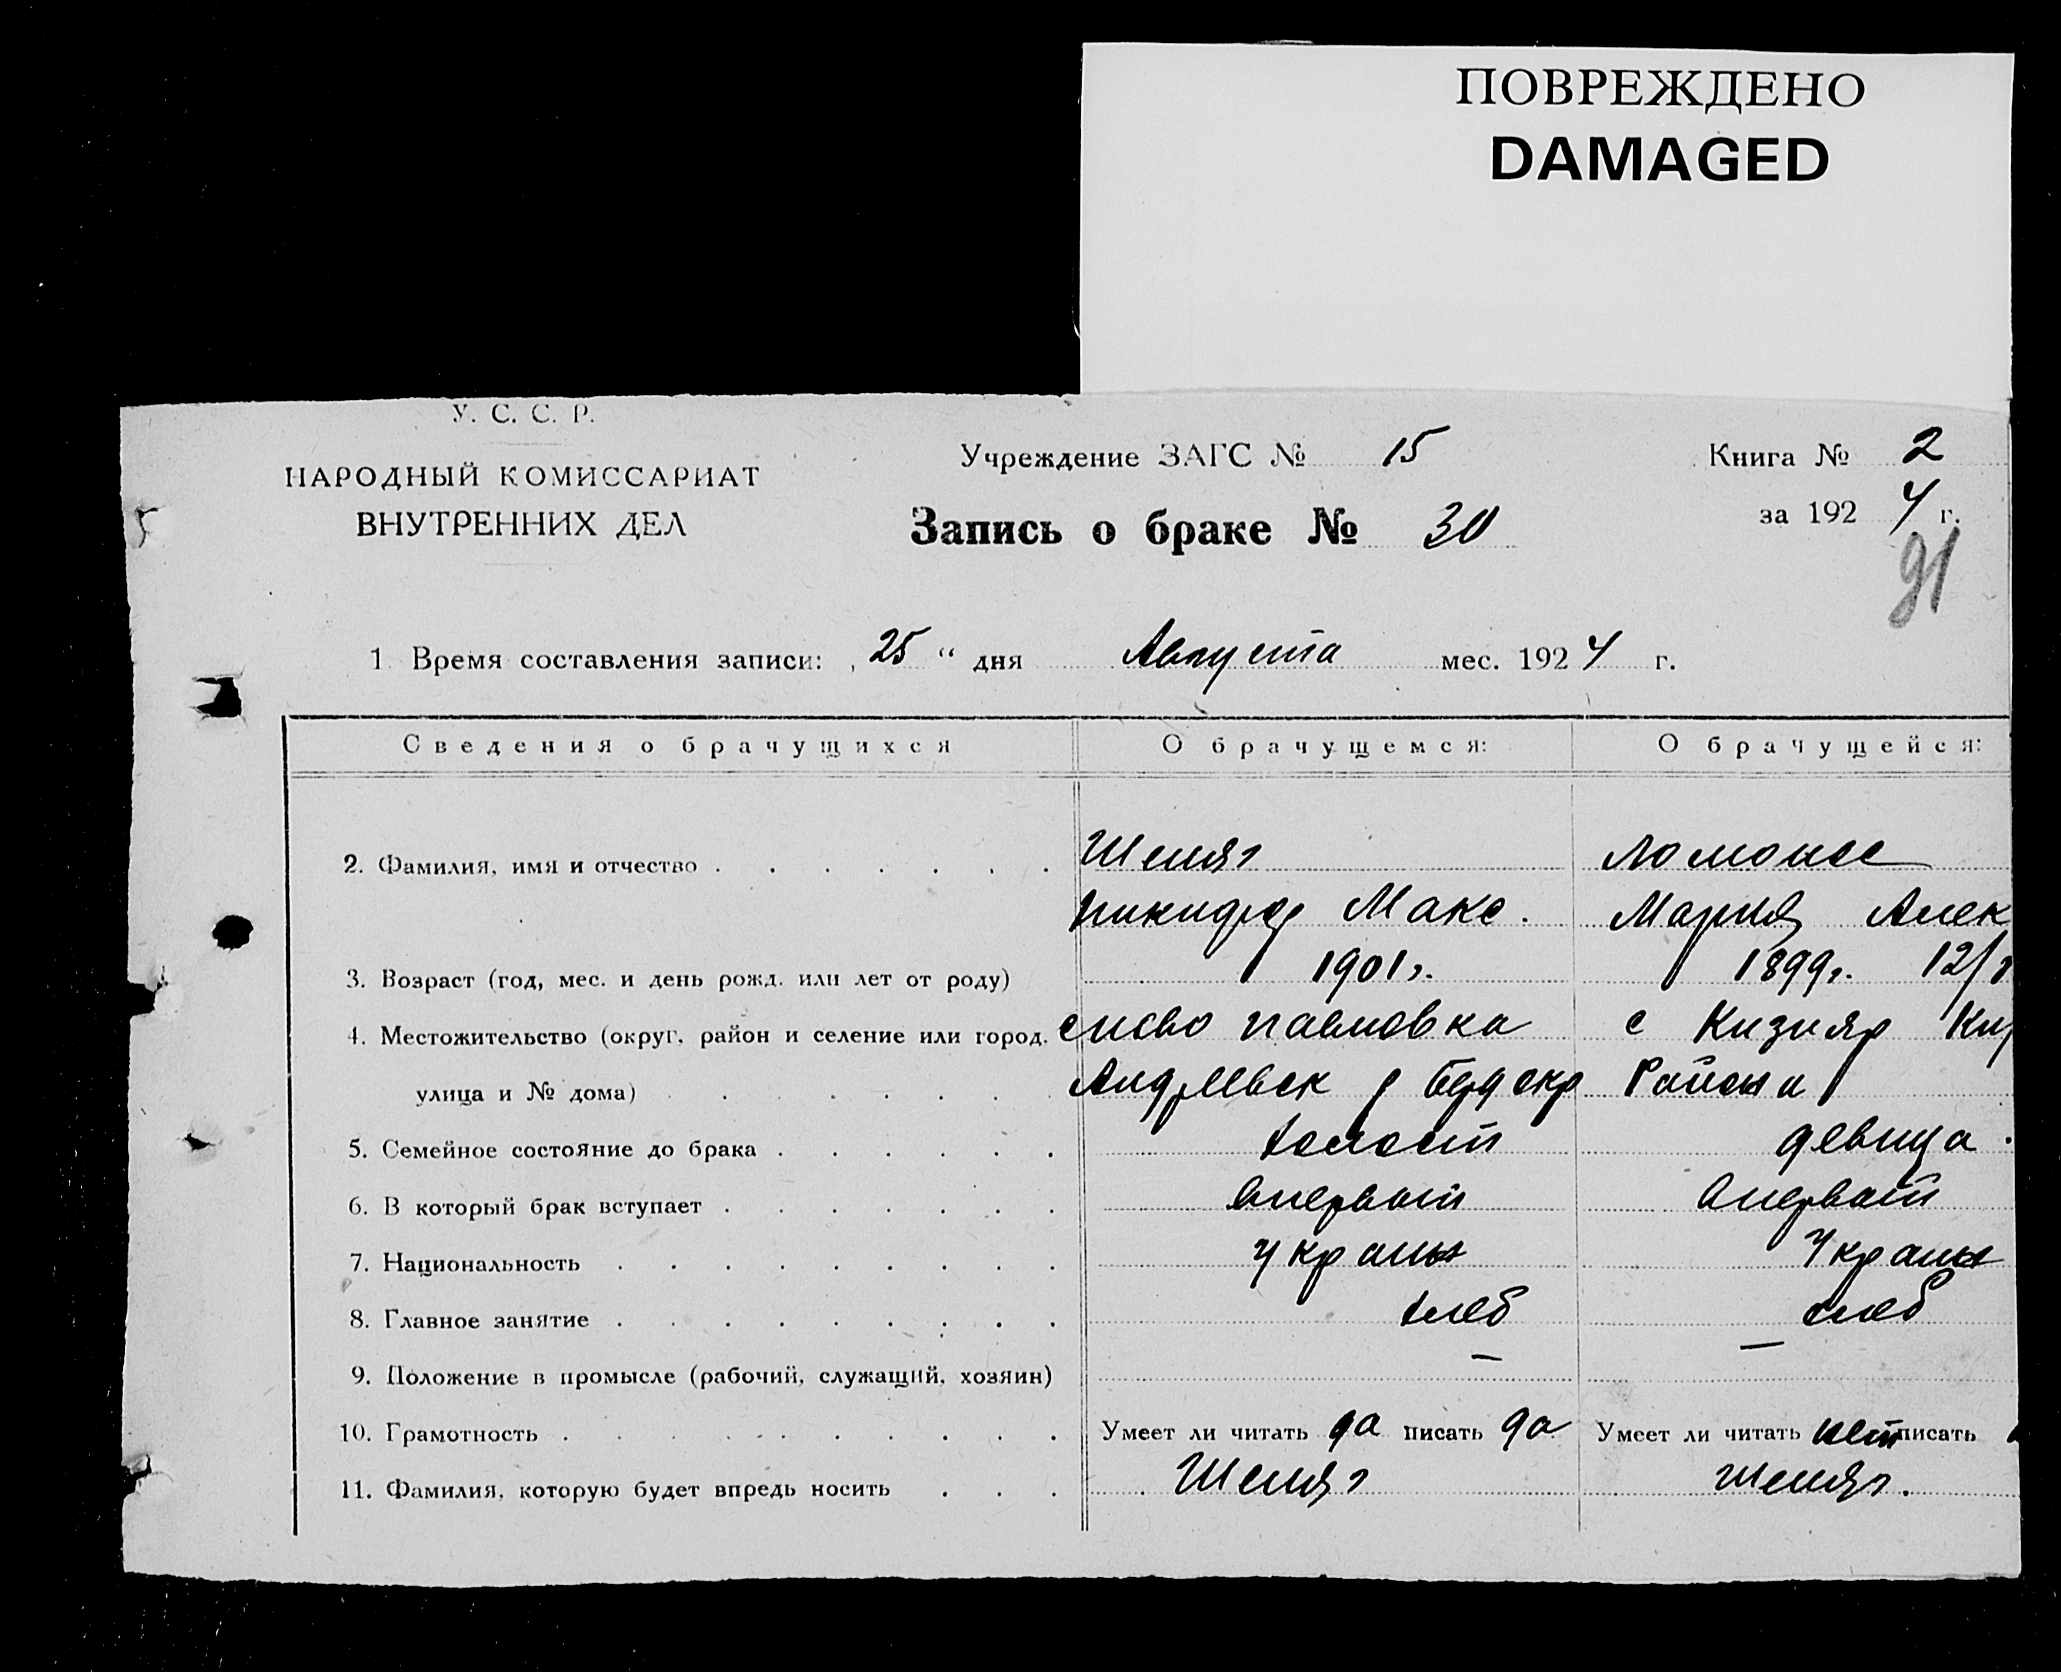 ПОВРЕЖДЕНО
DAMAGED
У. С. С. Р.
НАРОДНЫЙ КОМИССАРИАТ
ВНУТРЕННИХ ДЕЛ
Учреждение ЗАГС № 15
Книга № 2
за 1924 г.
Запись о браке № 30
91
1 Время составления записи: „ 25 “ дня Августа мес. 1924 г.
Сведения о брачущихся О брачущемся: О брачущейся:
2. Фамилия, имя и отчество . . . . . . . Шеляг Ломонос
Никифор Макс. Мария Алек
3. Возраст (год, мес. и день рожд. или лет от роду) 1901г. 1899г. 12/
4. Местожительство (округ, район и селение или город, павловка с Кизияр
улица и № дома) . . . . . . . Андреевск р Бердокр Района
5. Семейное состояние до брака . . . . . . холост девица.
6. В который брак вступает . . . . . . . впервый впервый
7. Национальность . . . . . . . . . Украин Украин
8. Главное занятие . . . . . . . . . хлеб хлеб
9. Положение в промысле (рабочий, служащий, хозяин) — —
10. Грамотность . . . . . . . . . . Умеет ли читать да писать да Умеет ли читать нет писать
11. Фамилия, которую будет впредь носить . . . Шеляг Шеляг.